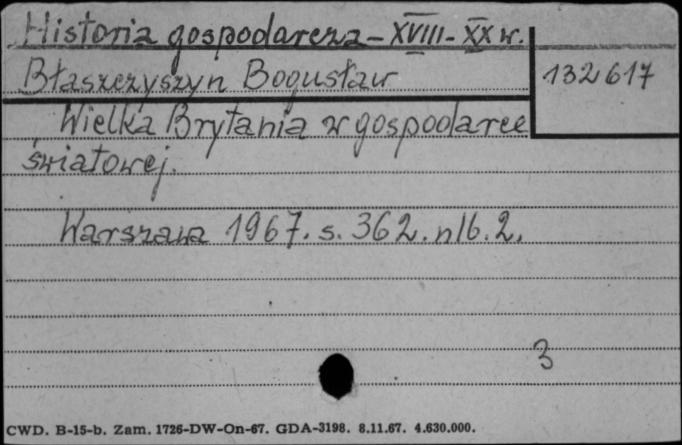 Historia gospodarcza - XVIII - XX w.
Błaszczyszyn Bogusław
132617
Wielka Brytania w gospodarce
światowej.
Warszawa 1967. s. 362. nlb. 2.
3
CWD. B-15-b. Zam. 1726-DW-On-67. GDA-3198. 8.11.67. 4.630.000.